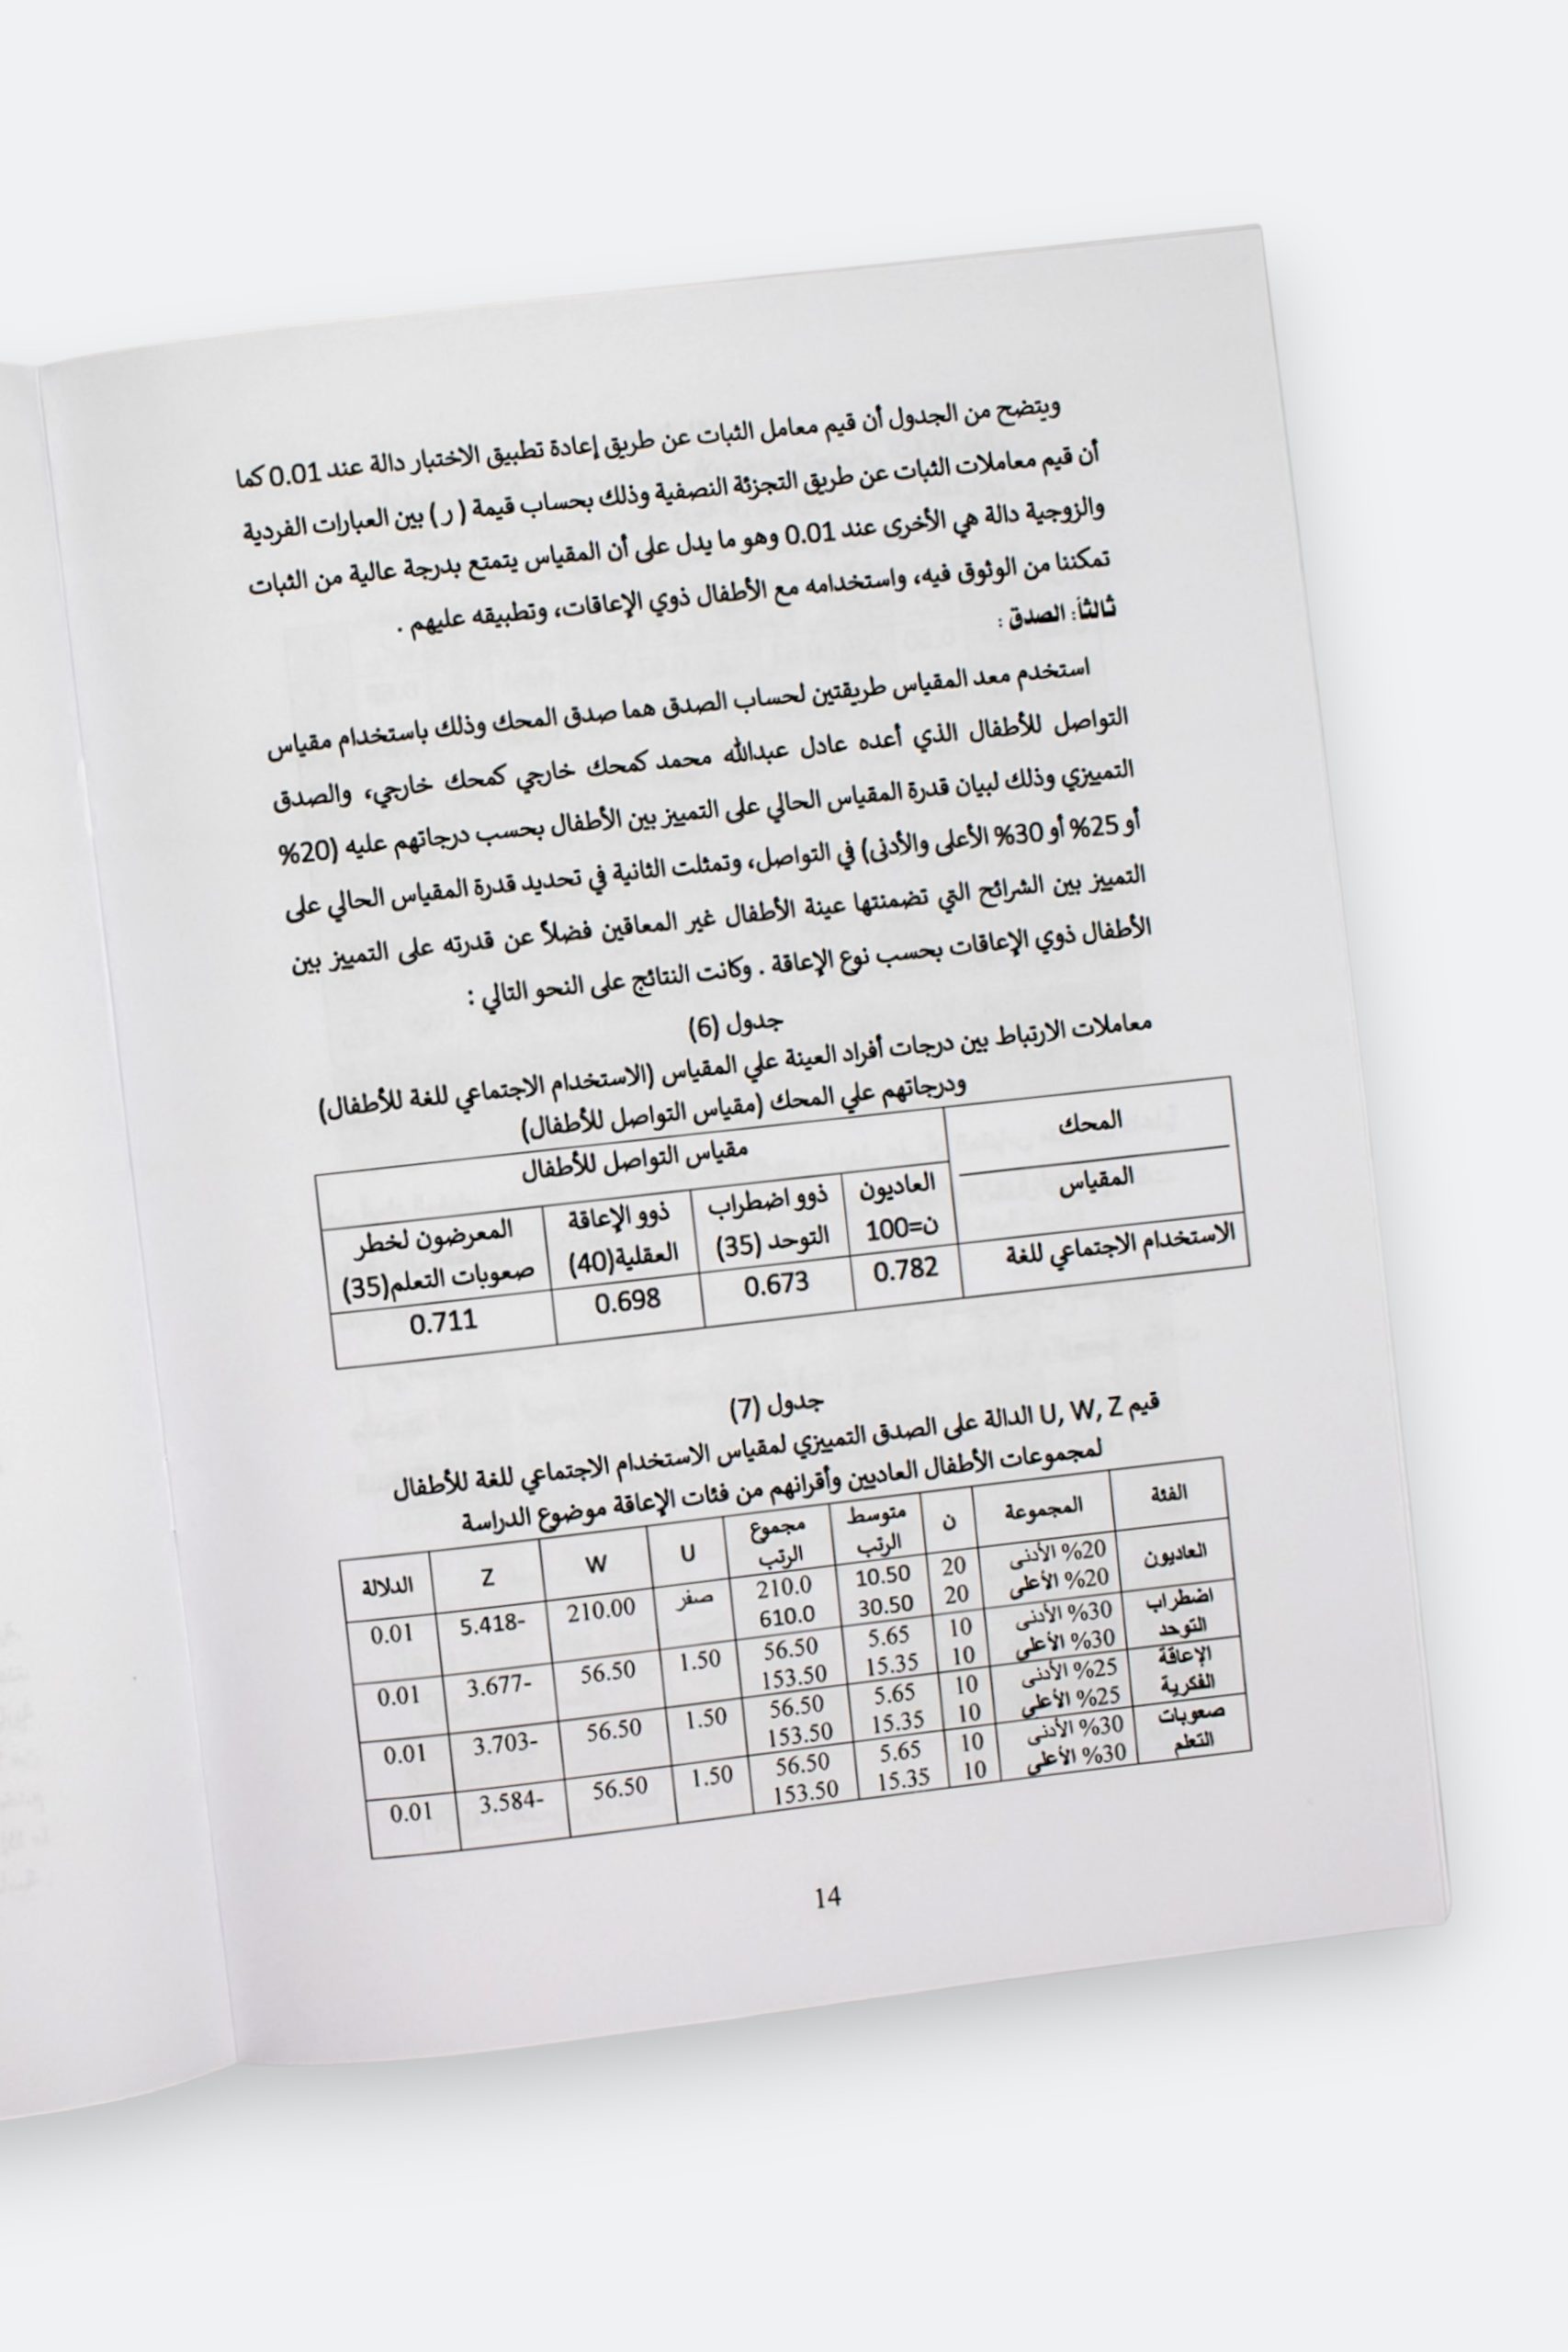 ويتضح من الجدول أن قيم معامل الثبات عن طريق إعادة تطبيق الاختبار دالة عند 0.01 كما
أن قيم معاملات الثبات عن طريق التجزئة النصفية وذلك بحساب قيمة ( ر ) بين العبارات الفردية
والزوجية دالة هي الأخرى عند 0.01 وهو ما يدل على أن المقياس يتمتع بدرجة عالية من الثبات
تمكننا من الوثوق فيه، واستخدامه مع الأطفال ذوي الإعاقات، وتطبيقه عليهم .
ثالثاً: الصدق :
استخدم معد المقياس طريقتين لحساب الصدق هما صدق المحك وذلك باستخدام مقياس
التواصل للأطفال الذي أعده عادل عبدالله محمد كمحك خارجي كمحك خارجي، والصدق
التمييزي وذلك لبيان قدرة المقياس الحالي على التمييز بين الأطفال بحسب درجاتهم عليه (20%
أو 25% أو 30% الأعلى والأدنى) في التواصل، وتمثلت الثانية في تحديد قدرة المقياس الحالي على
التمييز بين الشرائح التي تضمنتها عينة الأطفال غير المعاقين فضلاً عن قدرته على التمييز بين
الأطفال ذوي الإعاقات بحسب نوع الإعاقة . وكانت النتائج على النحو التالي :
جدول (6)
معاملات الارتباط بين درجات أفراد العينة علي المقياس (الاستخدام الاجتماعي للغة للأطفال)
ودرجاتهم علي المحك (مقياس التواصل للأطفال)
المحك مقياس التواصل للأطفال
المقياس العاديون ذوو اضطراب ذوو الإعاقة المعرضون لخطر
ن=100 التوحد (35) العقلية(40) صعوبات التعلم(35)
الاستخدام الاجتماعي للغة 0.782 0.673 0.698 0.711
جدول (7)
قيم U, W, Z الدالة على الصدق التمييزي لمقياس الاستخدام الاجتماعي للغة للأطفال
لمجموعات الأطفال العاديين وأقرانهم من فئات الإعاقة موضوع الدراسة
الفئة المجموعة ن متوسط الرتب مجموع الرتب U W Z الدلالة
العاديون 20% الأدنى 20 10.50 210.0 صفر 210.00 5.418- 0.01
20% الأعلى 20 30.50 610.0
اضطراب 30% الأدنى 10 5.65 56.50 1.50 56.50 3.677- 0.01
التوحد 30% الأعلى 10 15.35 153.50
الإعاقة 25% الأدنى 10 5.65 56.50 1.50 56.50 3.703- 0.01
الفكرية 25% الأعلى 10 15.35 153.50
صعوبات 30% الأدنى 10 5.65 56.50 1.50 56.50 3.584- 0.01
التعلم 30% الأعلى 10 15.35 153.50
14